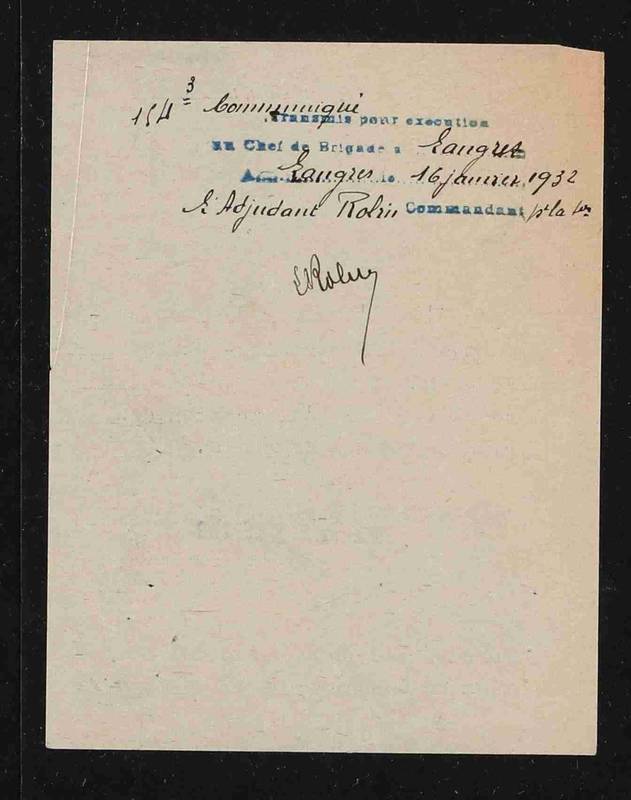 154 3 Communiqué
Transmis pour execution
au Chef de Brigade a Langres
Langres le 16 janvier 1932
L'Adjudant Robin Commandant pt la
Robin